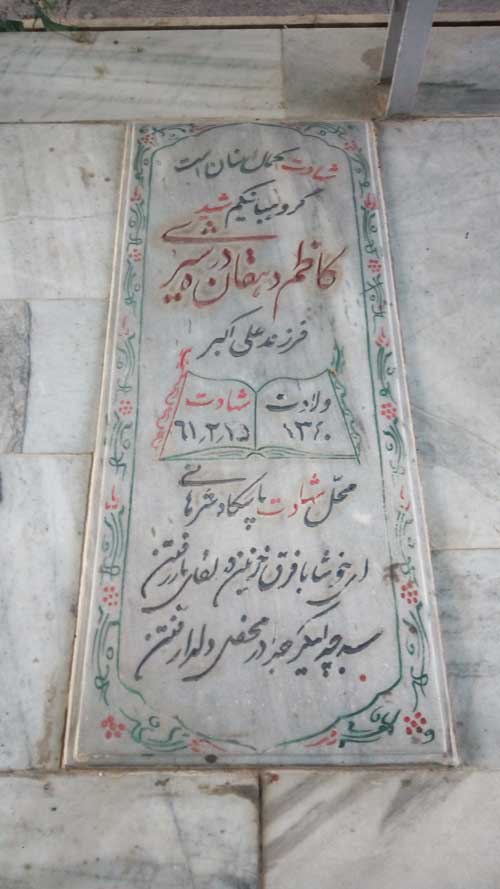 شهادت کمال انسان است
گروهبانیکم شهید
کاظم دهقان دره شیری
فرزند علی اکبر
ولادت شهادت
۱۳۴۰ ۶۱٫۲٫۱۵
محل شهادت پاسگاه شرهانی
ای خوشا با فرق خونین در لقای یار رفتن
سر جدا پیکر جدا در محفل دلدار رفتن